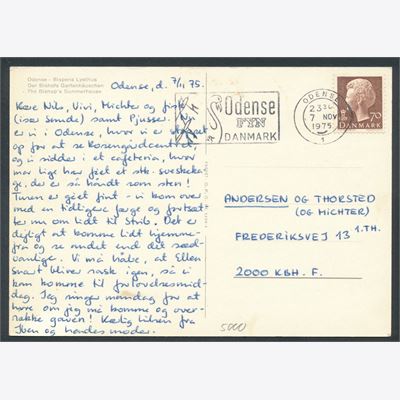 Odense - Bispens Lysthus
Der Bischofs Gartenhäuschen
The Bishop's Summerhouse
Odense, d. 7/11 75.
Kære Nils, Vivi, Michter og fisk
(især smede) samt Pjusser. Nu
er vi i Odense, hvor vi er stoppet
op for at se Rosengårdcentret,
og vi sidder i et cafeteria, hvor
mor lige har fået et stk. sveske-
ge, der er så hårdt som sten!
Turen er gået fint - vi kom over
med en tidligere færge og fortsæt-
ter nu om lidt til Strib. Det er
dejligt at komme lidt hjemme-
fra og se andet end det sæd-
vanlige. Vi må håbe, at Ellen
snart bliver rask igen, så vi
kan komme til forlovelsesmid-
dag. Jeg ringer mandag for at
høre om jeg må komme og over-
række gaven! Kærlig hilsen fra
Iben og hendes moder.
Odense
FYN
DANMARK
ODENSE
7 NOV
1975
70
DANMARK
ANDERSEN OG THORSTED
(OG MICHTER)
FREDERIKSVEJ 13 1.TH.
2000 KBH. F.
5000